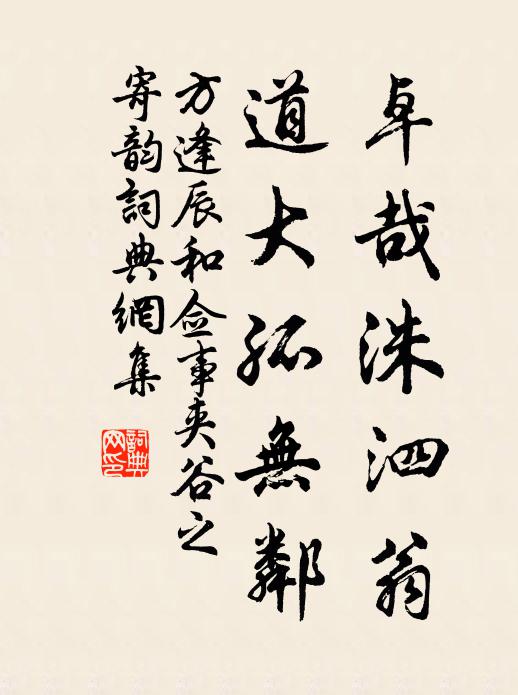 卓哉洙泗翁
道大孤無鄰
方逢辰和僉事夾谷之
寄韵詞典網集
詞典
网印